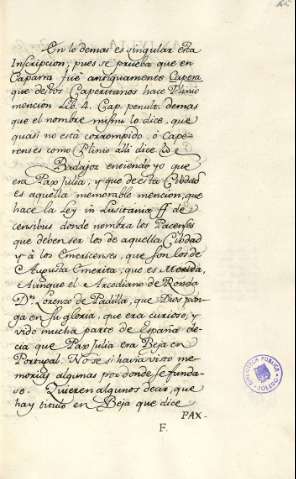 En lo demas es singular esta
Inscripcion; pues se prueba que en
Caparra fuè antiguamente Capera
que de los Caperitanos hace Plinio
mencion Lib. 4. Cap. penult. demas
que el nombre mismo lo dice, que
quasi no està corrompido, ò Cape-
renses como Plinio alli dice.
Badajoz entiendo yo que
era Pax Julia, y que de esta Ciudad
es aquella memorable mencion, que
hace la Ley in Lusitania ff de
censibus donde nombra los Pacenses
que deben ser los de aquella Ciudad
y à los Emeritenses, que son los de
Augusta Emerita, que es Merida,
Aunque el Arcediano de Ronda
Dn. Lorenzo de Padilla, que Dios pon-
ga en su gloria, que era curioso, y
vido mucha parte de España de-
cia que Pax Julia era Beja en
Portugal. No se si havia visto me-
morias algunas por donde se funda-
se. Quieren algunos decir, que
hay titulo en Beja que dice
PAX-
F.
BIBLIOTECA PUBLICA
TOLEDO